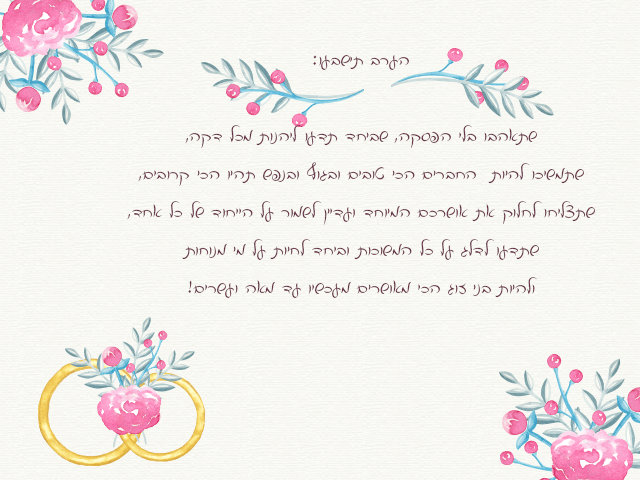 הערב תישבעו:
שתאהבו בלי הפסקה, שביחד תדעו ליהנות מכל דקה,
שתמשיכו להיות החברים הכי טובים ובגוף ובנפש תהיו הכי קרובים,
שתצליחו לחלוק את אושרכם המיוחד ועדיין לשמור על הייחוד של כל אחד,
שתדעו לדלג על כל המשוכות וביחד לחיות על מי מנוחות
ולהיות בני זוג הכי מאושרים מעכשיו עד מאה ועשרים!